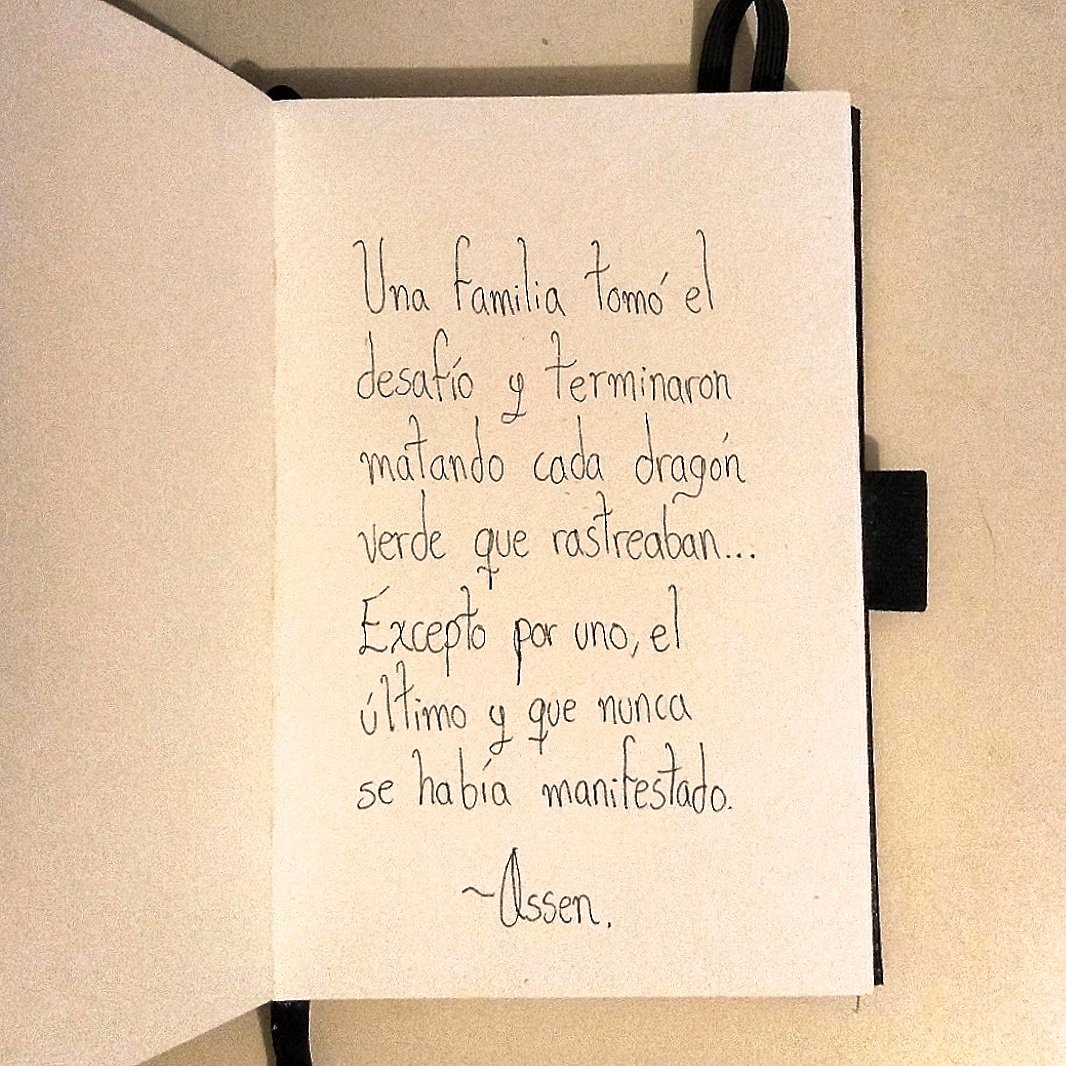 Una familia tomó el
desafío y terminaron
matando cada dragón
verde que rastreaban...
Excepto por uno, el
último y que nunca
se había manifestado.
~Assen.